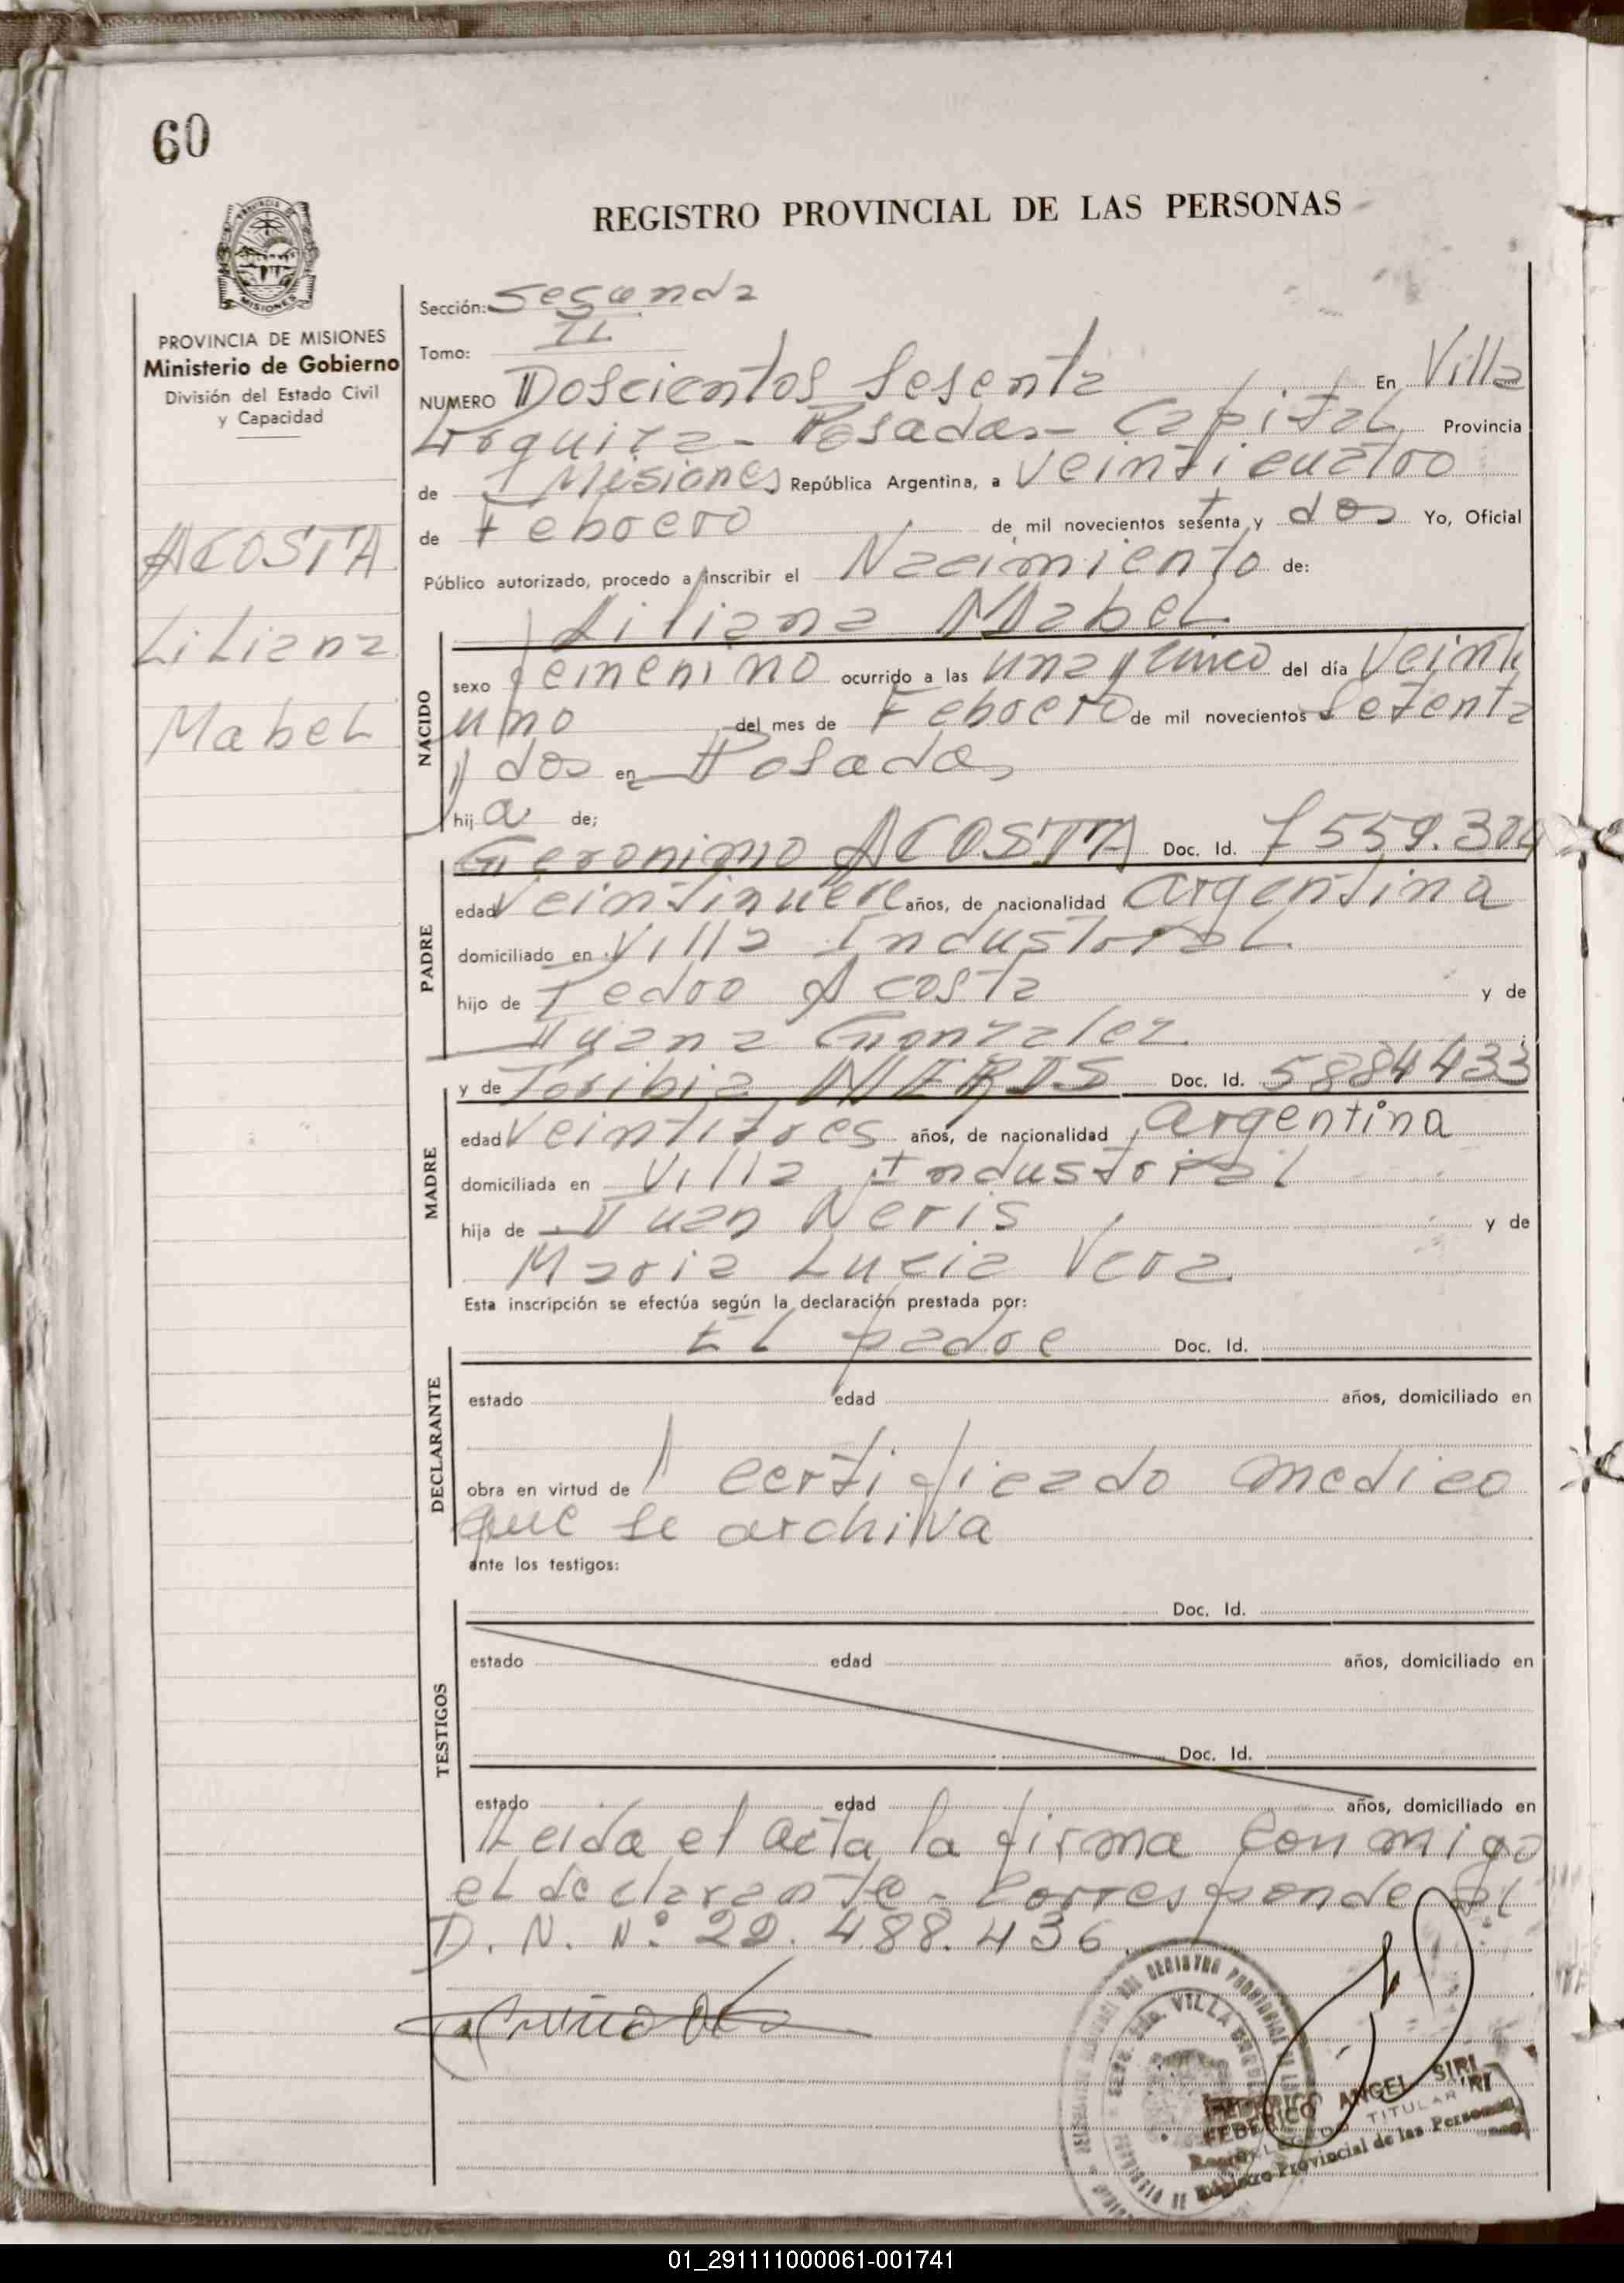 60
REGISTRO PROVINCIAL DE LAS PERSONAS
PROVINCIA DE MISIONES
Ministerio de Gobierno
División del Estado Civil
y Capacidad
ACOSTA
Liliana
Mabel
Sección: Segunda
Tomo: II
NUMERO Doscientos Sesenta En Villa
Urquiza - Posadas - Capital Provincia
de Misiones República Argentina, a Veinticuatro
de Febrero de mil novecientos setenta y dos Yo, Oficial
Público autorizado, procedo a inscribir el Nacimiento de:
Liliana Mabel
NACIDO
sexo femenino ocurrido a las una y cinco del día Veinti
uno del mes de Febrero de mil novecientos Setenta
y dos en Posadas
hij a de;
PADRE
Geronimo ACOSTA Doc. Id. 7559.304
edad Veintinueve años, de nacionalidad argentina
domiciliado en Villa Industrial
hijo de Pedro Acosta y de
Juana Gonzalez
MADRE
y de Toribia NERIS Doc. Id. 5884433
edad Veintitres años, de nacionalidad argentina
domiciliada en Villa Industrial
hija de Juan Neris y de
Maria Lucia Vera
Esta inscripción se efectúa según la declaración prestada por:
DECLARANTE
El padre Doc. Id.
estado edad años, domiciliado en
obra en virtud de certificado medico
que se archiva
ante los testigos:
TESTIGOS
Doc. Id.
estado edad años, domiciliado en
Doc. Id.
estado edad años, domiciliado en
Leida el acta la firma conmigo
el declarante - Corresponde al
D. N. Nº 22.488.436.
FEDERICO ANGEL SIRI
DELEGADO TITULAR
Registro Provincial de las Personas
01_291111000061-001741